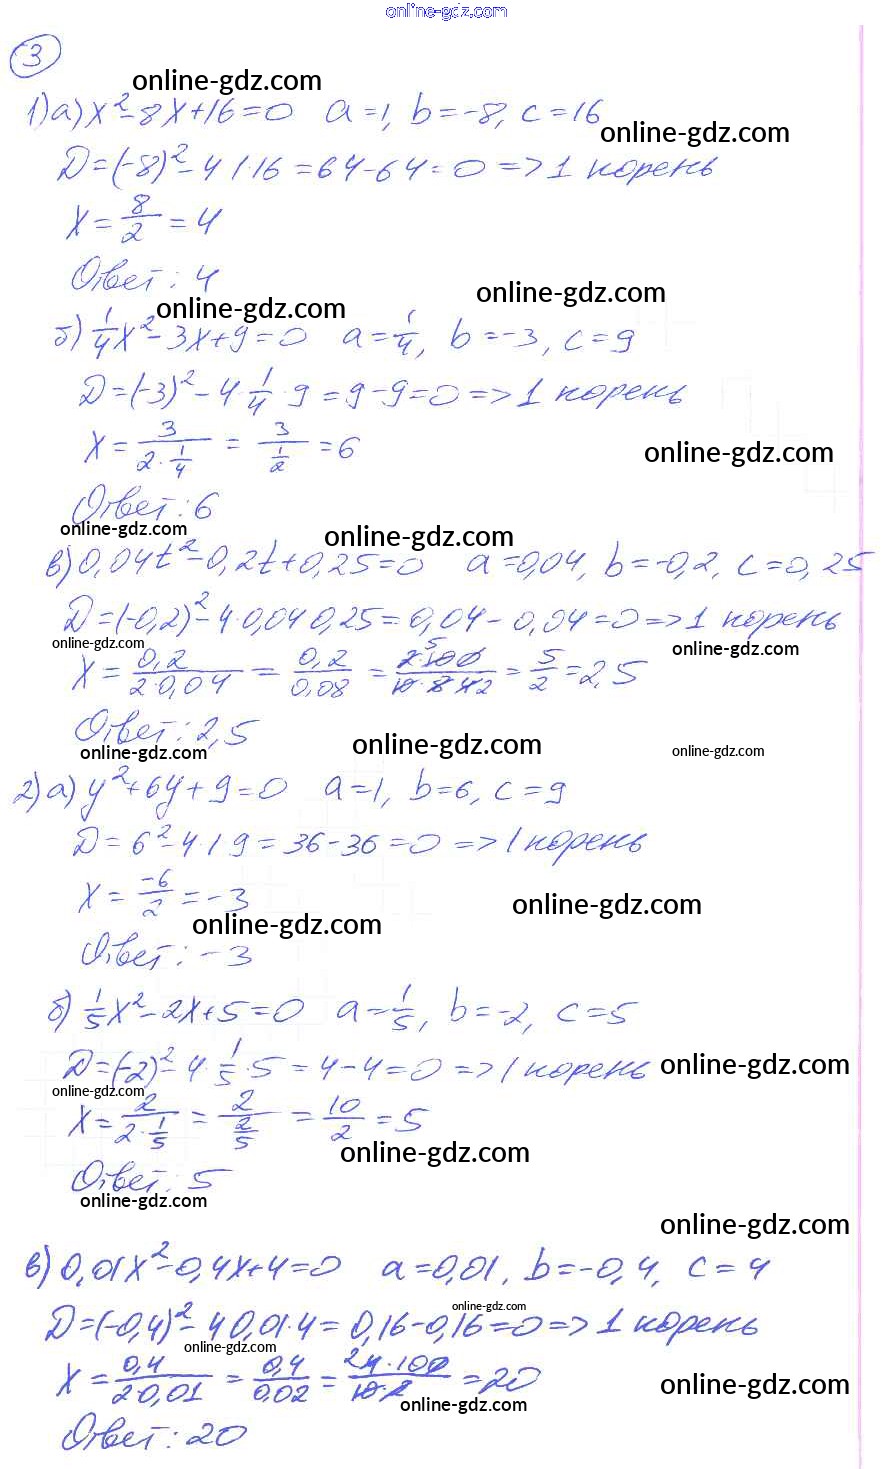 online-gdz.com
3
online-gdz.com
1) а) x² - 8x + 16 = 0   a = 1, b = -8, c = 16
online-gdz.com
D = (-8)² - 4·1·16 = 64 - 64 = 0 => 1 корень
x = 8/2 = 4
Ответ: 4
online-gdz.com
online-gdz.com
б) 1/4 x² - 3x + 9 = 0   a = 1/4, b = -3, c = 9
D = (-3)² - 4·1/4·9 = 9 - 9 = 0 => 1 корень
x = 3/(2·1/4) = 3/(1/2) = 6
online-gdz.com
Ответ: 6
online-gdz.com
online-gdz.com
в) 0,04t² - 0,2t + 0,25 = 0   a = 0,04, b = -0,2, c = 0,25
D = (-0,2)² - 4·0,04·0,25 = 0,04 - 0,04 = 0 => 1 корень
online-gdz.com
online-gdz.com
x = 0,2/(2·0,04) = 0,2/0,08 = = 5/2 = 2,5
Ответ: 2,5
online-gdz.com
online-gdz.com
online-gdz.com
2) а) y² + 6y + 9 = 0   a = 1, b = 6, c = 9
D = 6² - 4·1·9 = 36 - 36 = 0 => 1 корень
x = -6/2 = -3
online-gdz.com
online-gdz.com
Ответ: -3
б) 1/5 x² - 2x + 5 = 0   a = 1/5, b = -2, c = 5
D = (-2)² - 4·1/5·5 = 4 - 4 = 0 => 1 корень
online-gdz.com
online-gdz.com
x = 2/(2·1/5) = 2/(2/5) = 10/2 = 5
online-gdz.com
Ответ: 5
online-gdz.com
online-gdz.com
в) 0,01x² - 0,4x + 4 = 0   a = 0,01, b = -0,4, c = 4
online-gdz.com
D = (-0,4)² - 4·0,01·4 = 0,16 - 0,16 = 0 => 1 корень
online-gdz.com
x = 0,4/(2·0,01) = 0,4/0,02 = = 20
online-gdz.com
online-gdz.com
Ответ: 20